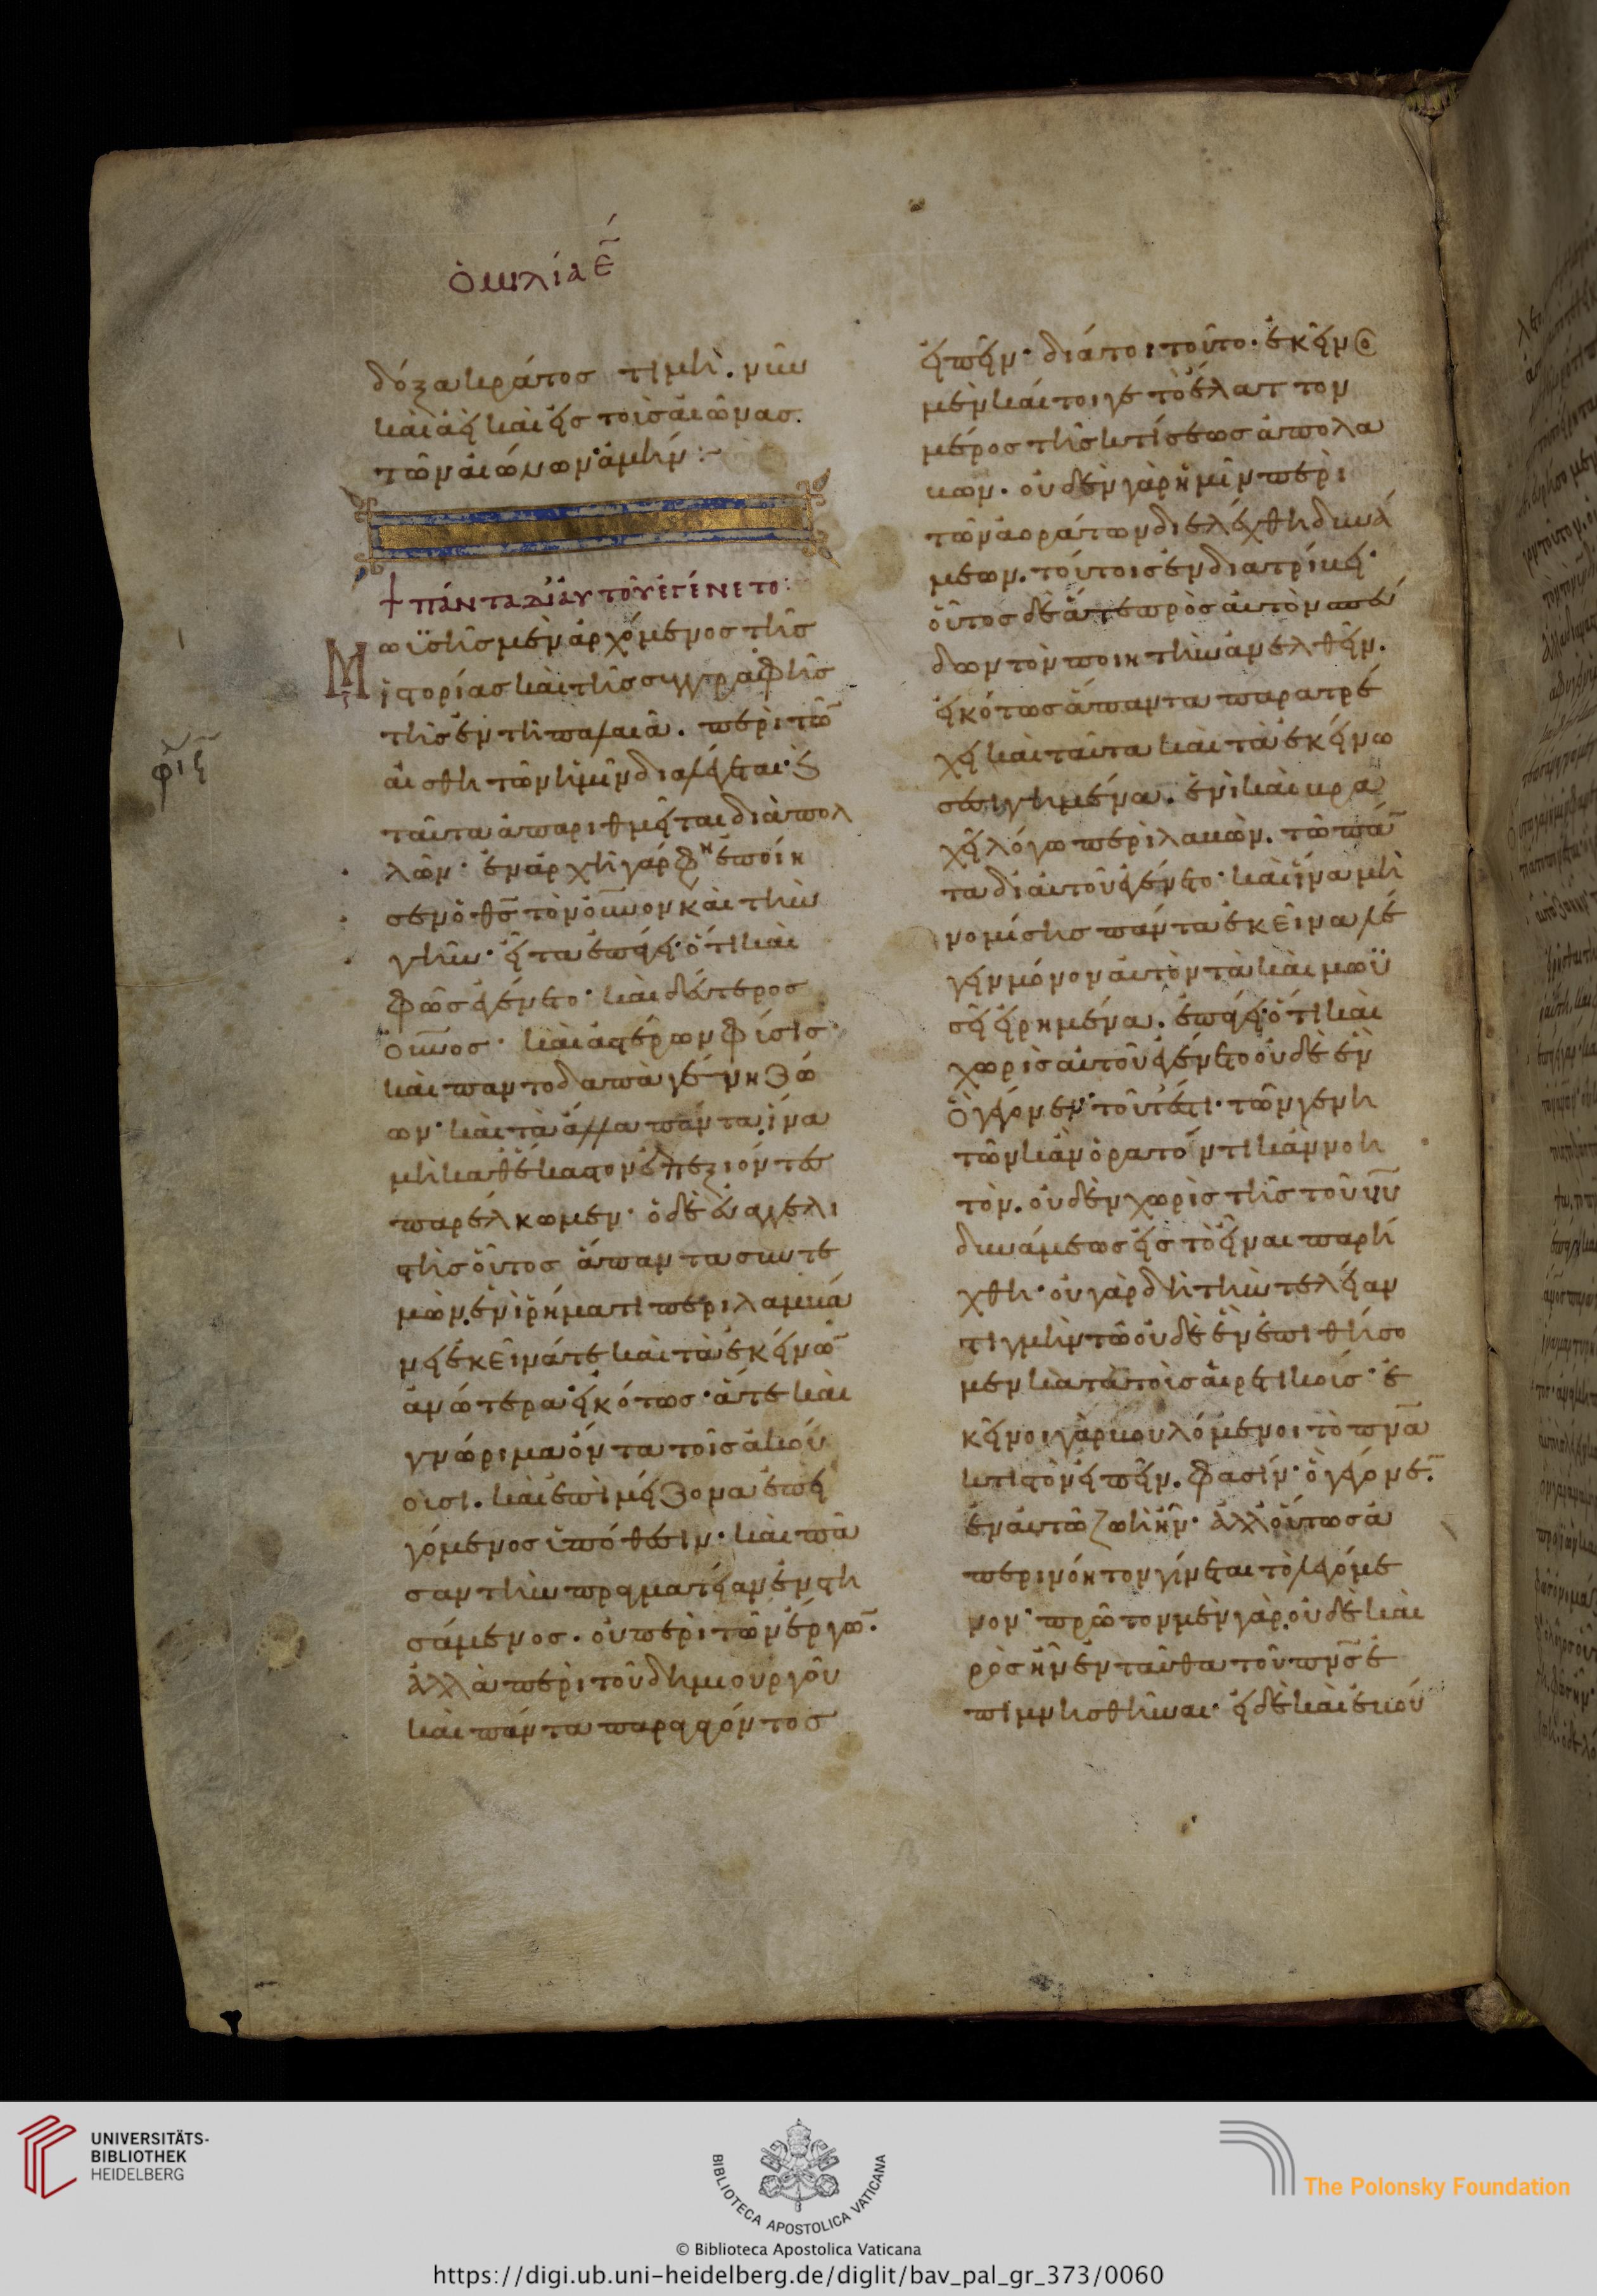 ὁμιλία ε̄
δόξα κράτος τιμὴ. νῦν
καὶ ἀεὶ καὶ εἰς τοὺς αἰῶνας.
τῶν αἰώνων· ἀμήν :~
+ πάντα δι' αὐτοῦ ἐγένετο:
Μωϋσῆς μὲν ἀρχόμενος τῆς
ἱστορίας καὶ τῆς συγγραφῆς
τῆς ἐν τῆ παλαιᾶ. περὶ τῶ̅
αἰσθητῶν ἡμῖν διαλέγεται· ϗ
ταῦτα ἀπαριθμεῖται διὰ πολ
λῶν· ἐν ἀρχῆ γάρ φη ἐποίη
σεν ὁ θ̅ς̅ τὸν ο̅υ̅ν̅ο̅ν καὶ τὴν
γῆν· εἶτα ἐπάγει· ὅτι καὶ
φῶς ἐγένετο· καὶ δεύτερος
ο̅υ̅ν̅ος· καὶ ἀστέρων φύσις·
καὶ παντοδαπὰ γένη ζώ
ων· καὶ τὰ ἄλλα πάντα, ἵνα
μὴ καθ' ἕκαστον ἐπεξιόντες
παρέλκωμεν· ὁ δὲ εὐαγγελι
στὴς οὗτος ἅπαντα συντε
μὼν, ἑνὶ ῥήματι περιλαμβά
νει ἐκεῖνά τε καὶ τὰ ἐκείνω̅
ἀνώτερα· εἰκότως· ἅτε καὶ
γνώριμα ὄντα τοῖς ἀκού
ουσι. καὶ ἐπὶ μείζονα ἐπει
γόμενος ὑπόθεσιν· καὶ πᾶ
σαν τὴν πραγματείαν ἐνστη
σάμενος. οὐ περὶ τῶν ἔργω̅.
ἀλλὰ περὶ τοῦ δημιουργοῦ
καὶ πάντα παραγαγόντος
εἰπεῖν· διά τοι τοῦτο· ἐκεῖνος
μὲν καίτοιγε τὸ ἔλαττον
μέρος τῆς κτίσεως ἀπολα
βων. οὐδὲν γὰρ ἡμῖν περὶ
τῶν ἀοράτων διελέχθη δυνά
μεων. τούτοις ἐνδιατρίβει·
οὗτος δὲ ἅτε πρὸς αὐτὸν σπεύ
δων τὸν ποιητὴν ἀνελθεῖν.
εἰκότως ἅπαντα παρατρέ
χει καὶ ταῦτα καὶ τὰ ἐκείνω
σεσιγημένα. ἑνὶ καὶ βρα
χεῖ λόγω περιλαβὼν. τῶ πά̅
τα δι' αὐτοῦ ἐγένετο· καὶ ἵνα μὴ
νομίσης πάντα ἐκεῖνα λέ
γειν μόνον αὐτὸν τὰ καὶ μωϋ
σεῖ εἰρημένα. ἐπάγει· ὅτι καὶ
χωρὶς αὐτοῦ ἐγένετο οὐδὲ ἓν
ὃ γέγονεν· τουτέστι· τῶν γενη
τῶν κἂν ὁρατὸν τι κἂν νοη
τὸν. οὐδὲν χωρὶς τῆς τοῦ υ̅υ̅
δυνάμεως εἰς τὸ εἶναι παρή
χθη· οὐ γὰρ δὴ τὴν τελείαν
στιγμὴν τῶ οὐδὲ ἓν ἐπιθήσο
μεν κατὰ τοὺς αἱρετικούς· ἐ
κεῖνοι γὰρ βουλόμενοι τὸ π̅ν̅α̅
κτιστὸν εἰπεῖν. φασίν· ὃ γέγονε̅.
ἐν αὐτῶ ζωὴ ἦν· ἀλλ' οὕτως ἀ
περινόητον γίνεται τὸ λεγόμε
νον· πρῶτον μὲν γὰρ, οὐδὲ και
ρὸς ἦν ἐνταῦθα τοῦ π̅ν̅ς̅ ἐ
πιμνησθῆναι· εἰ δὲ καὶ ἐβού
UNIVERSITÄTS-
BIBLIOTHEK
HEIDELBERG
BIBLIOTECA APOSTOLICA VATICANA
The Polonsky Foundation
© Biblioteca Apostolica Vaticana
https://digi.ub.uni-heidelberg.de/diglit/bav_pal_gr_373/0060